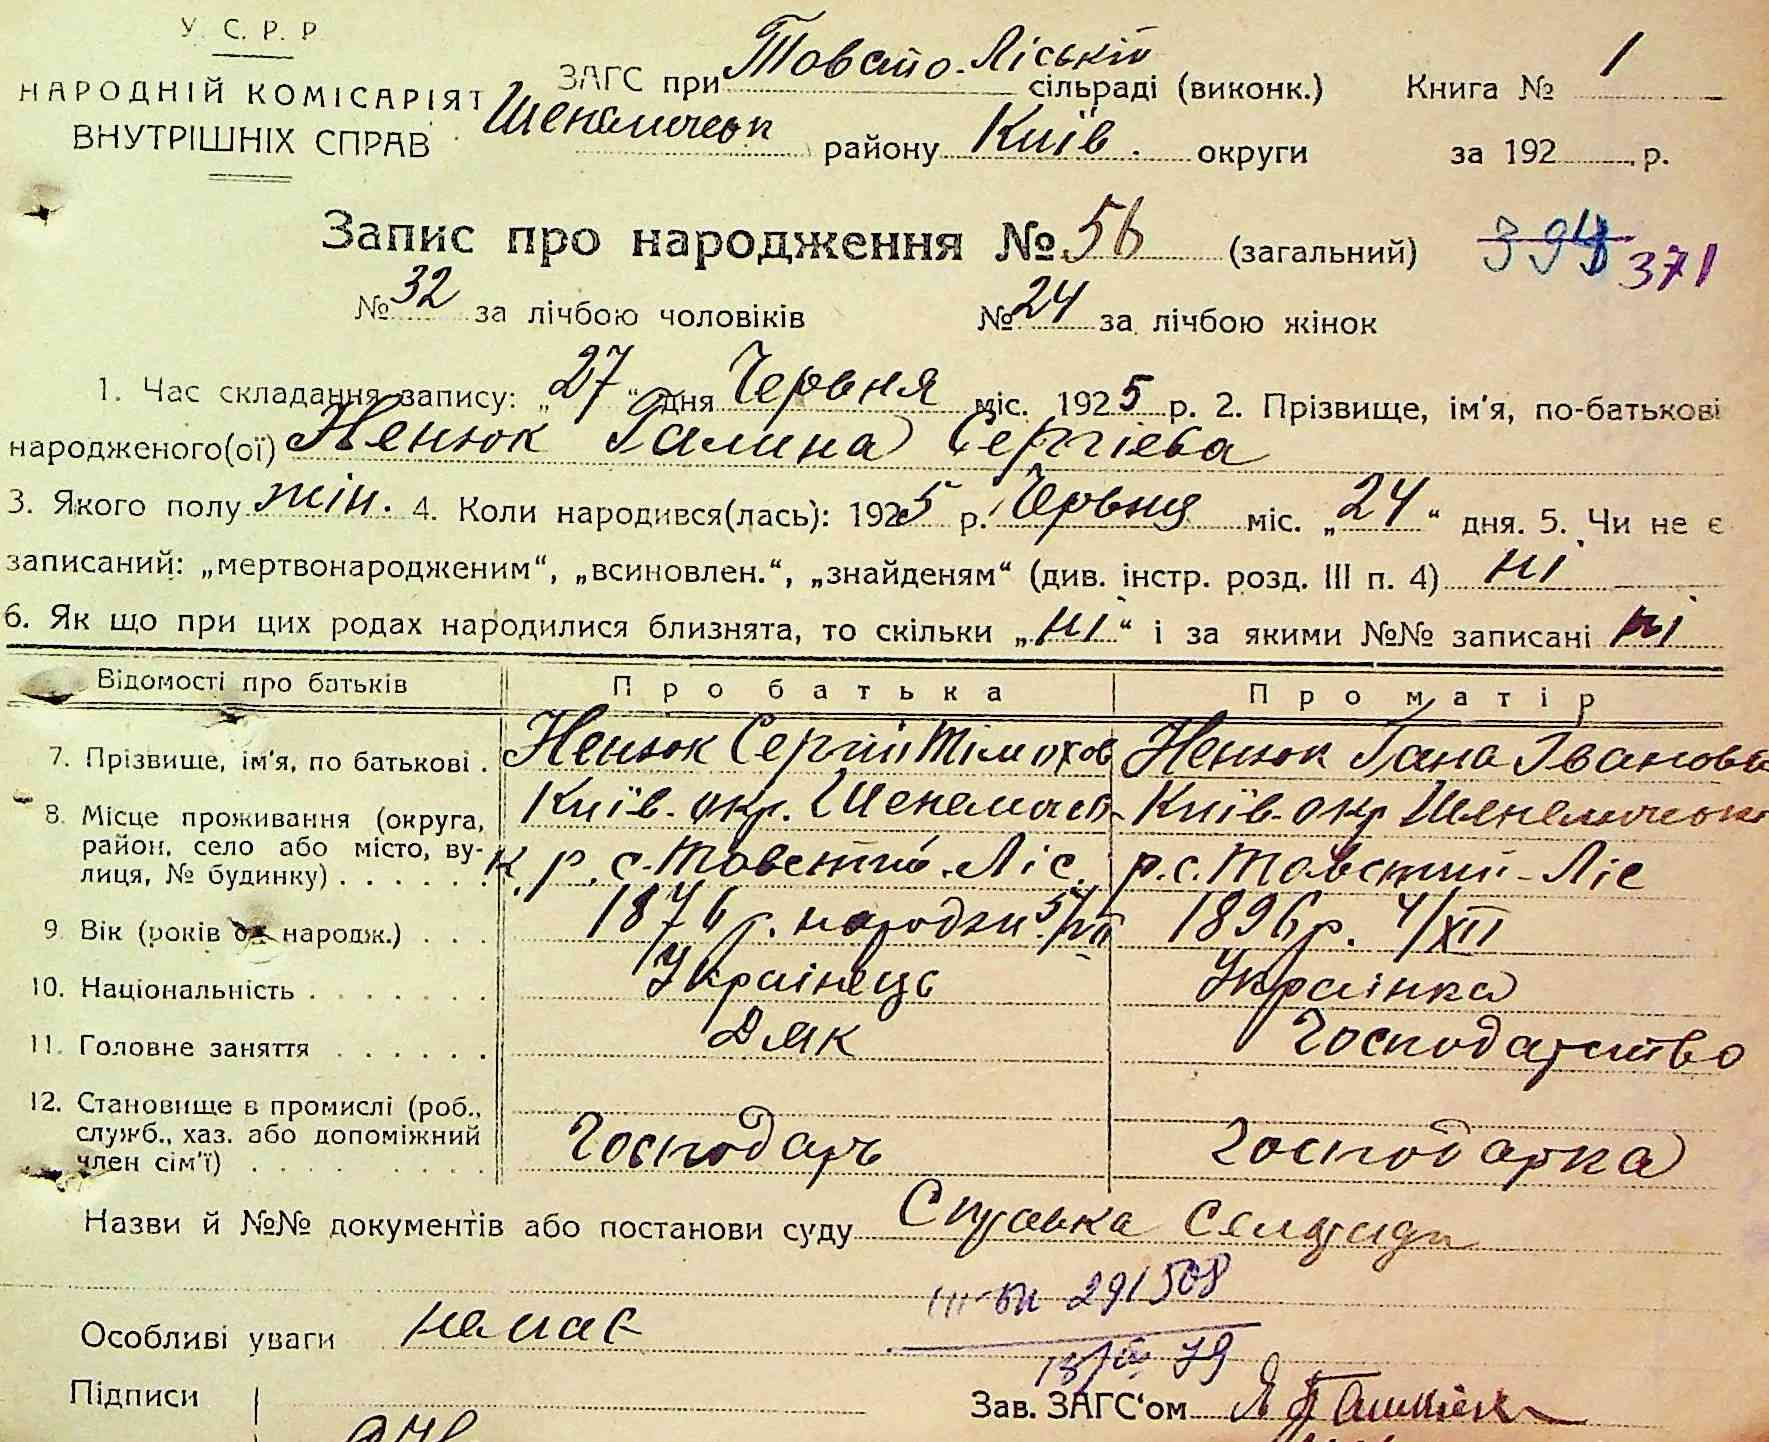 У. С. Р. Р
НАРОДНІЙ КОМІСАРІЯТ
ВНУТРІШНІХ СПРАВ
ЗАГС при Товсто-Ліській сільраді (виконк.) Книга № 1
району Київ. округи за 192 р.
Запис про народження № 56 (загальний) 371
№ 32 за лічбою чоловіків № 24 за лічбою жінок
1. Час складання запису: „27“ дня Червня міс. 1925 р. 2. Прізвище, ім'я, по-батькові
народженого(ої) Ненюк Галина Сергієва
3. Якого полу жін. 4. Коли народився(лась): 1925 р. Червня міс. „24“ дня. 5. Чи не є
записаний: „мертвонародженим“, „всиновлен.“, „знайденям“ (див. інстр. розд. III п. 4) ні
6. Як що при цих родах народилися близнята, то скільки „ні“ і за якими №№ записані ні
Відомості про батьків Про батька Про матір
7. Прізвище, ім'я, по батькові . Ненюк Сергій Тімохов Ненюк Гана Іванова
8. Місце проживання (округа, район, село або місто, вулиця, № будинку) . . . . . . Київ. окр. р. с. Товстий-Ліс. Київ. окр р. с. Товстий-Ліс
9. Вік (років народж.) . . . 1876 р. народж 5/VII 1896 р. 4/XII
10. Національність . . . . . . . Українець Українка
11. Головне заняття . . . . . . Дяк Господарство
12. Становище в промислі (роб., служб., хаз. або допоміжний член сім'ї) . . . . . . . . Господарь Господарка
Назви й №№ документів або постанови суду Справка Сельради
291508
79
Особливі уваги немає
Підписи
Зав. ЗАГС'ом